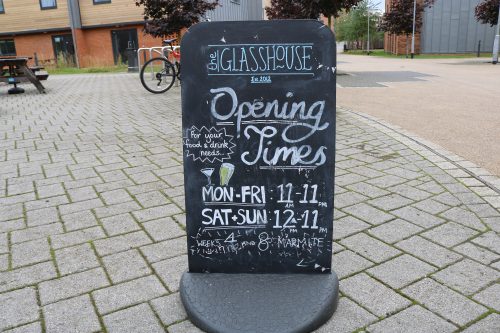 the GLASSHOUSE
Est 2012
Opening
Times
For your
food & drink
needs...
MON-FRI 11AM-11PM
SAT+SUN 12PM-11PM
WEEKS 4 AND 8 MARMITE